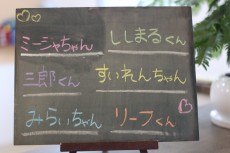 ミーシャちゃん
ししまるくん
三郎くん
すいれんちゃん
みらいちゃん
リーフくん